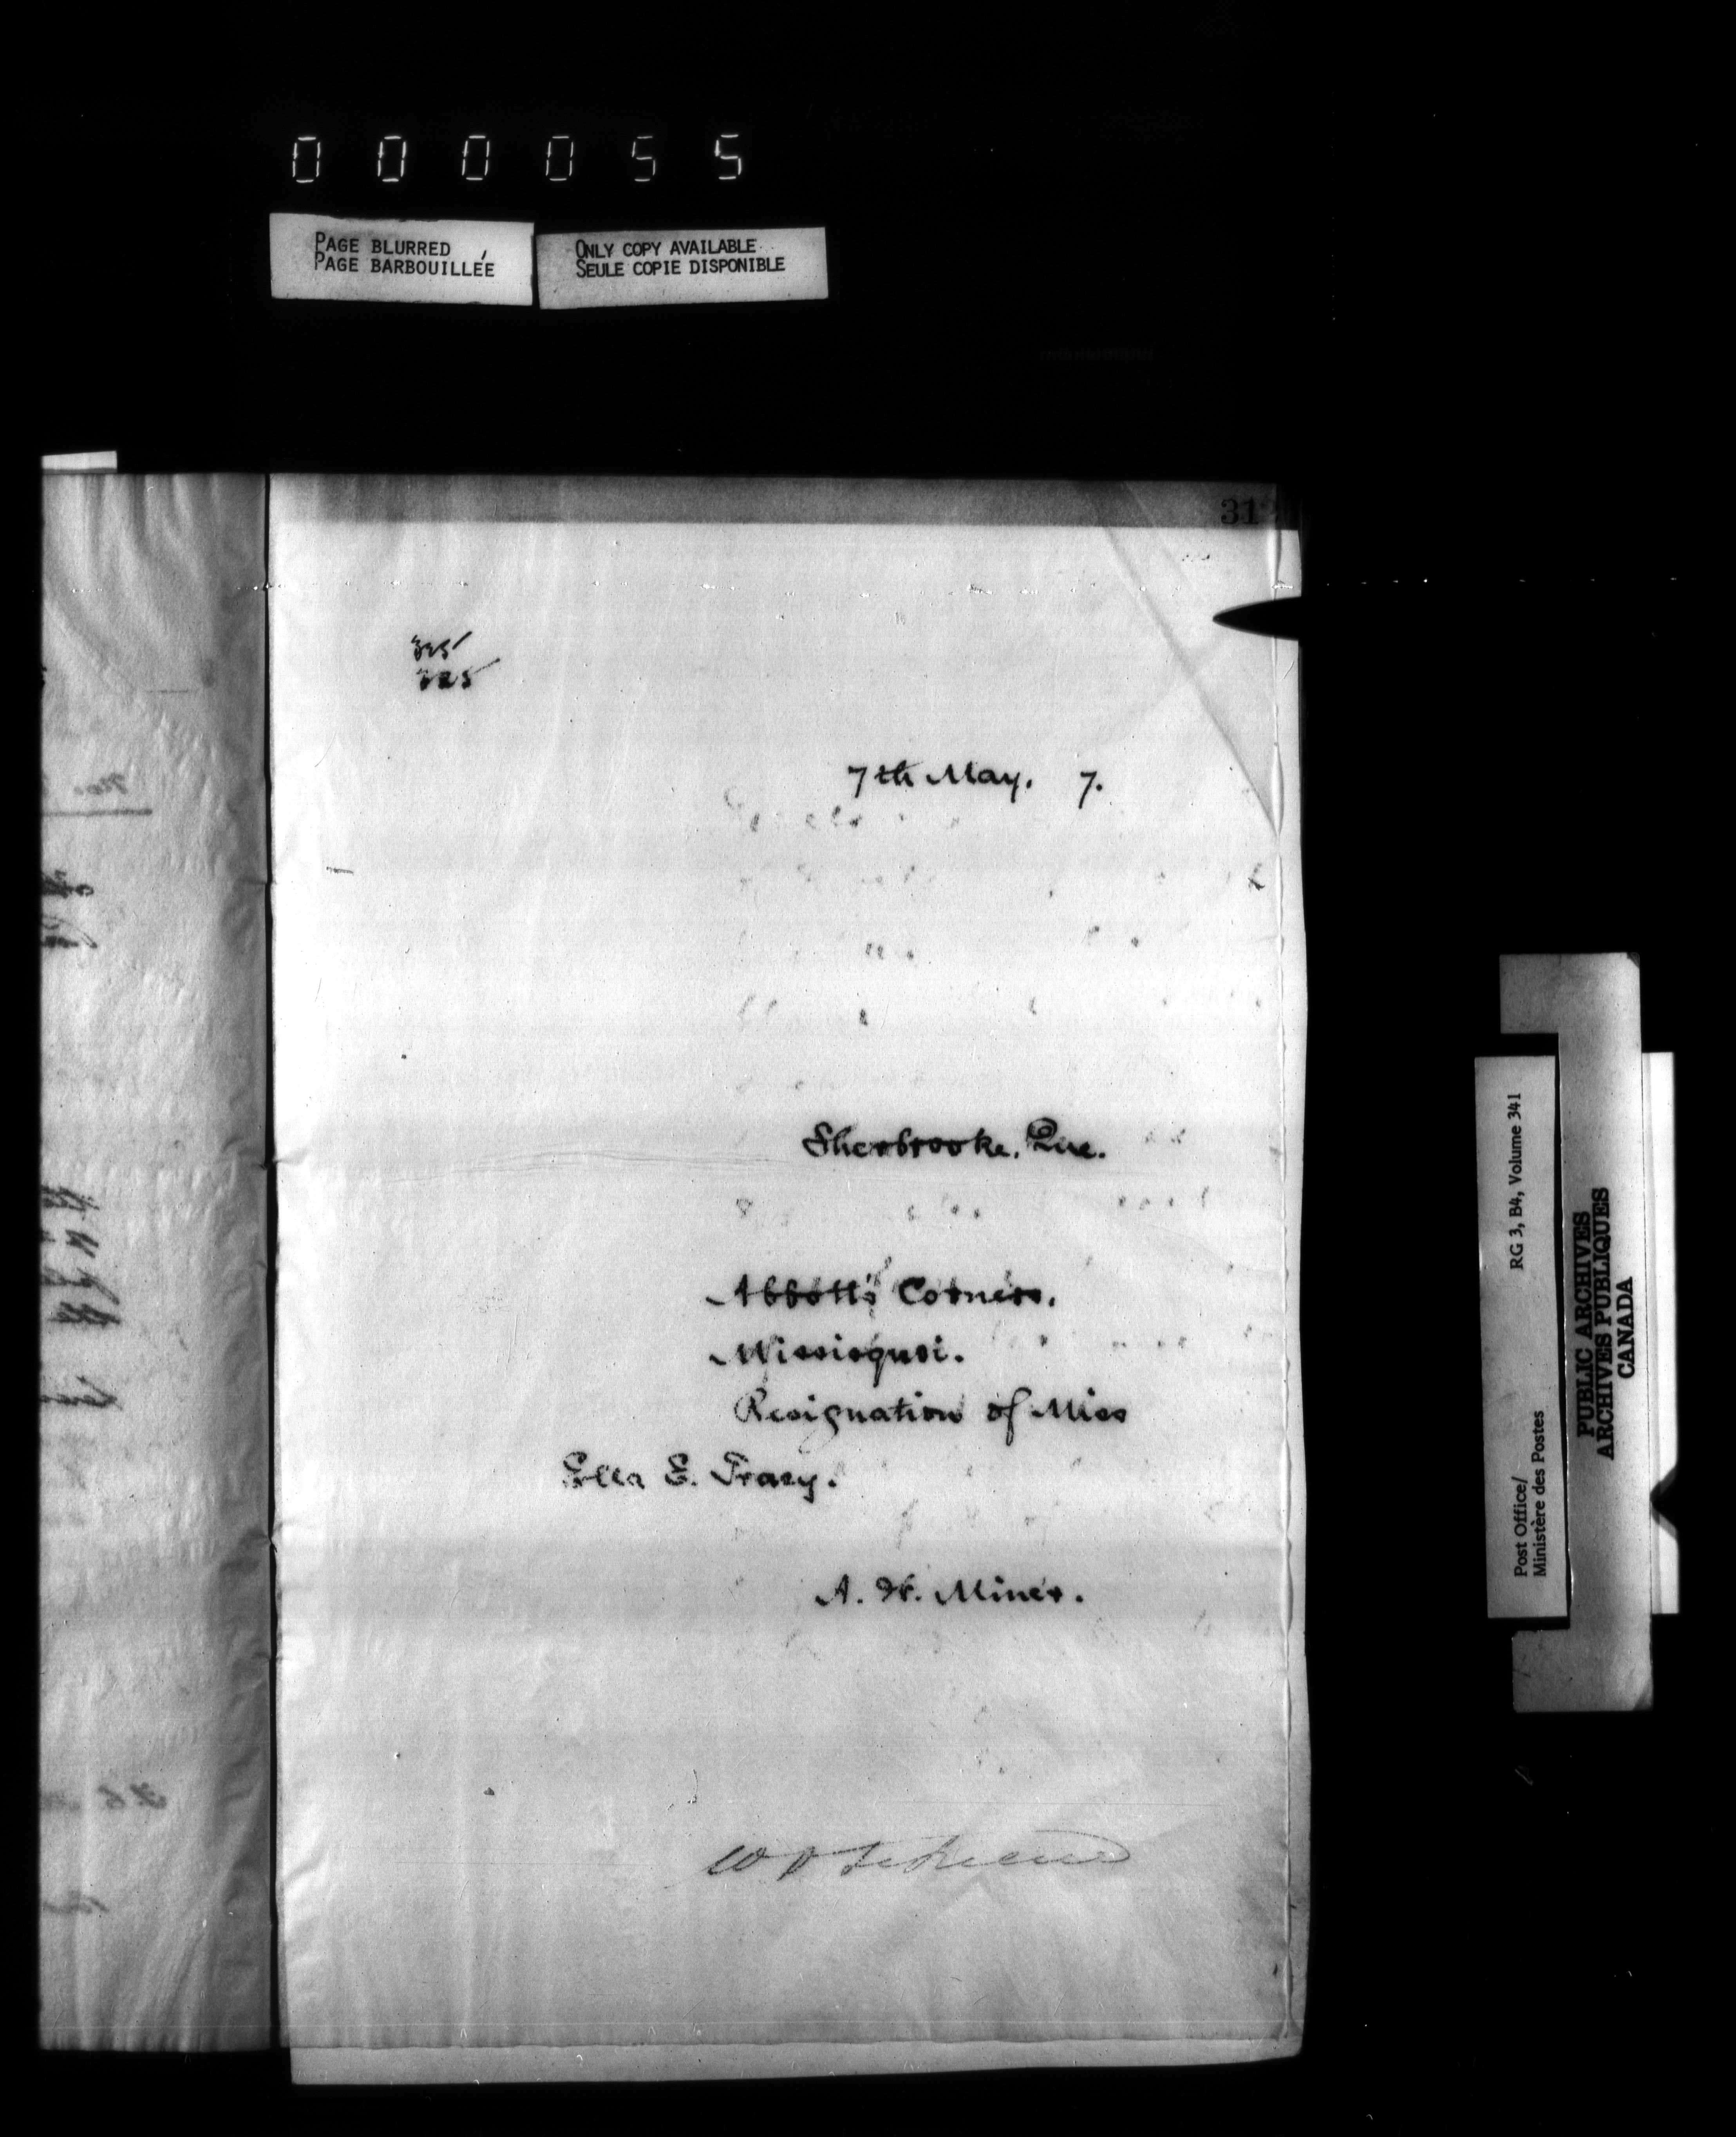 000055
PAGE BLURRED
PAGE BARBOUILLÉE
ONLY COPY AVAILABLE
SEULE COPIE DISPONIBLE
31
325
325
7th May. 7.
Sherbrooke, Que.
Abbott's Corners.
Missisquoi.
Resignation of Miss
Ella E. Tracy.
A. H. Miner.
RG 3, B4, Volume 341
Post Office/
Ministère des Postes
PUBLIC ARCHIVES
ARCHIVES PUBLIQUES
CANADA